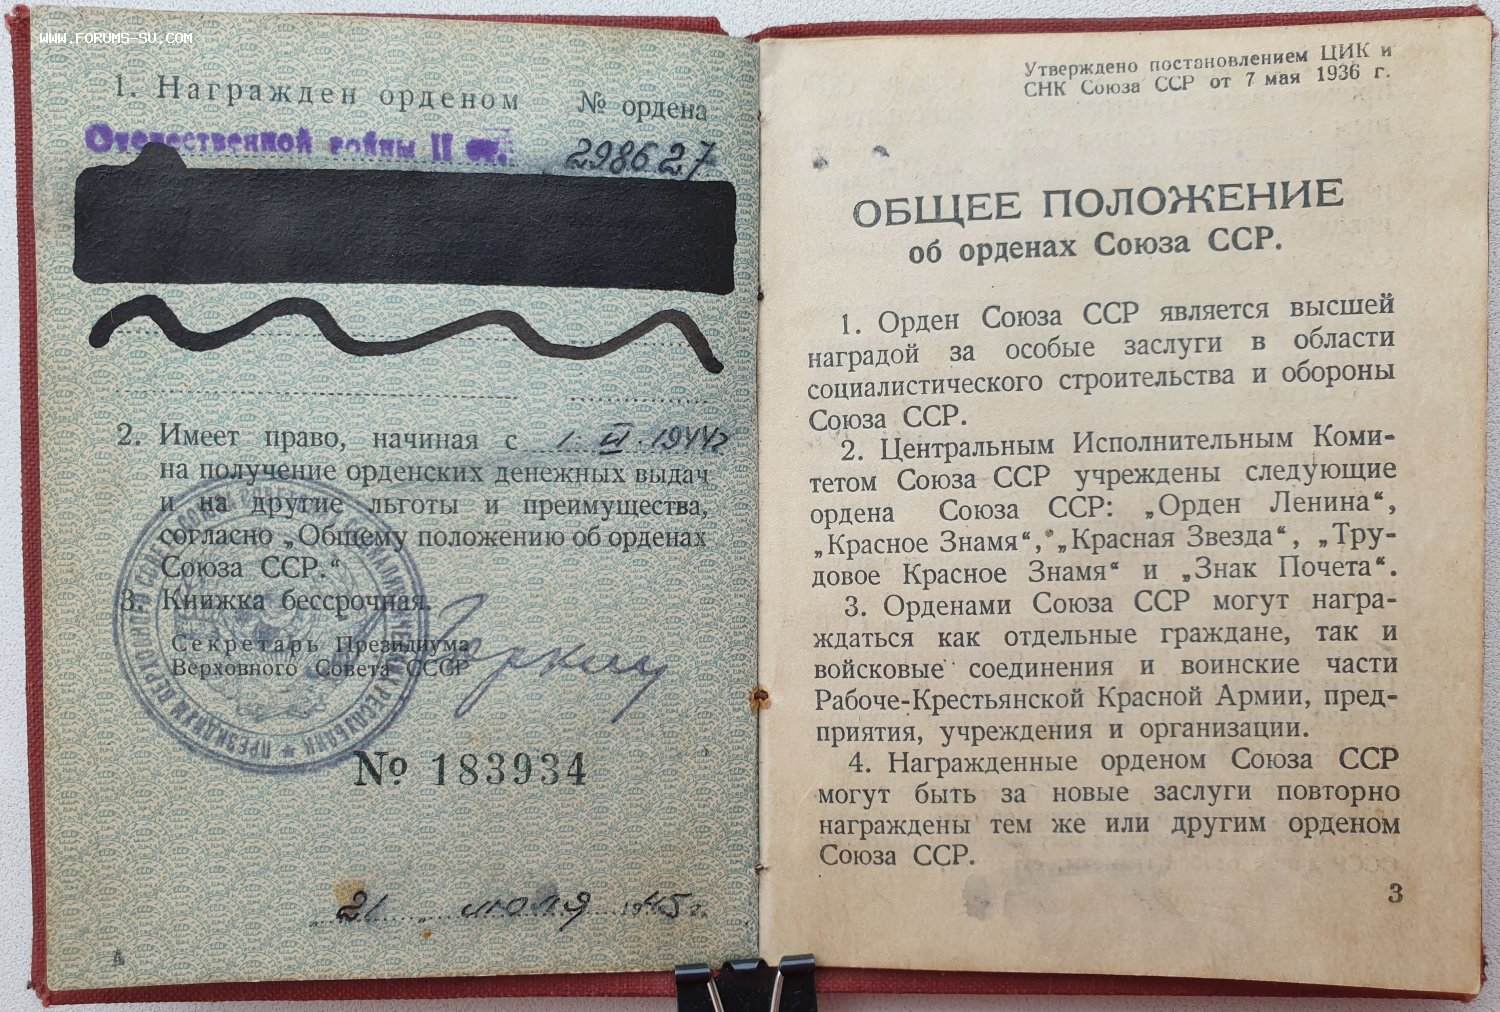 www.forums-su.com
1. Награжден орденом № ордена
Отечественной войны II ст. 298627
2. Имеет право, начиная с 1. VI. 1944г
на получение орденских денежных выдач
и на другие льготы и преимущества,
согласно „Общему положению об орденах
Союза ССР.“
3. Книжка бессрочная.
Секретарь Президиума
Верховного Совета СССР
ПРЕЗИДИУМ ВЕРХОВНОГО СОВЕТА СОЮЗА СОВЕТСКИХ СОЦИАЛИСТИЧЕСКИХ РЕСПУБЛИК
№ 183934
„21“ июля 1945 г.
А
Утверждено постановлением ЦИК и
СНК Союза ССР от 7 мая 1936 г.
ОБЩЕЕ ПОЛОЖЕНИЕ
об орденах Союза ССР.
1. Орден Союза ССР является высшей
наградой за особые заслуги в области
социалистического строительства и обороны
Союза ССР.
2. Центральным Исполнительным Коми-
тетом Союза ССР учреждены следующие
ордена Союза ССР: „Орден Ленина“,
„Красное Знамя“, „Красная Звезда“, „Тру-
довое Красное Знамя“ и „Знак Почета“.
3. Орденами Союза ССР могут награ-
ждаться как отдельные граждане, так и
войсковые соединения и воинские части
Рабоче-Крестьянской Красной Армии, пред-
приятия, учреждения и организации.
4. Награжденные орденом Союза ССР
могут быть за новые заслуги повторно
награждены тем же или другим орденом
Союза ССР.
3